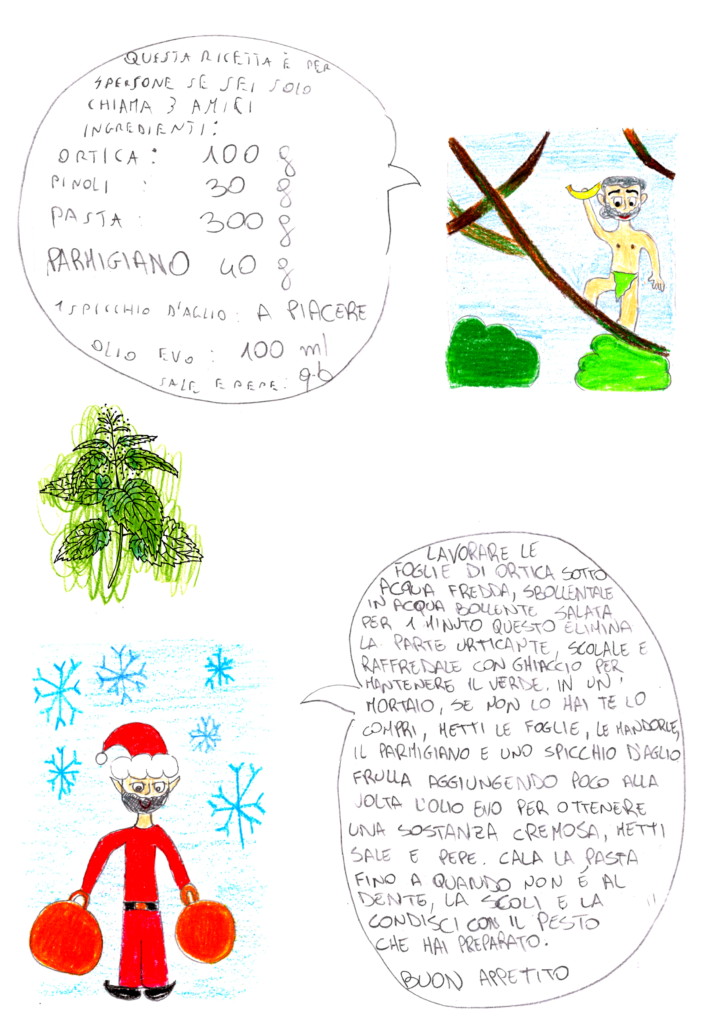 QUESTA RICETTA È PER
4 PERSONE SE SEI SOLO
CHIAMA 3 AMICI
INGREDIENTI:
ORTICA: 100 g
PINOLI : 30 g
PASTA: 300 g
PARMIGIANO 40 g
1 SPICCHIO D'AGLIO: A PIACERE
OLIO EVO: 100 ml
SALE E PEPE: q.b
LAVORARE LE
FOGLIE DI ORTICA SOTTO
ACQUA FREDDA, SBOLLENTALE
IN ACQUA BOLLENTE SALATA
PER 1 MINUTO QUESTO ELIMINA
LA PARTE URTICANTE, SCOLALE E
RAFFREDALE CON GHIACCIO PER
MANTENERE IL VERDE. IN UN'
MORTAIO, SE NON LO HAI TE LO
COMPRI, METTI LE FOGLIE, LE MANDORLE,
IL PARMIGIANO E UNO SPICCHIO D'AGLIO
FRULLA AGGIUNGENDO POCO ALLA
VOLTA L'OLIO EVO PER OTTENERE
UNA SOSTANZA CREMOSA, METTI
SALE E PEPE. CALA LA PASTA
FINO A QUANDO NON É AL
DENTE, LA SCOLI E LA
CONDISCI CON IL PESTO
CHE HAI PREPARATO.
BUON APPETITO